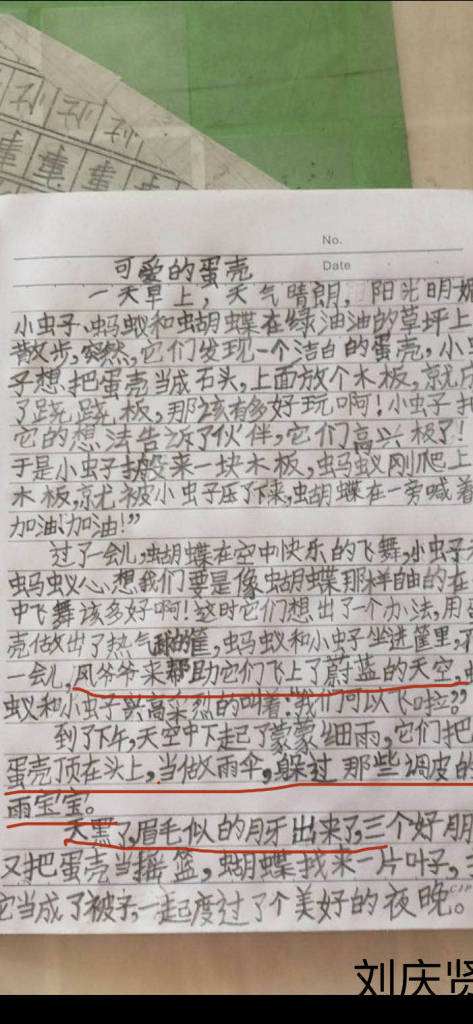 No.
Date
可爱的蛋壳
一天早上，天气晴朗，阳光明媚
小虫子、蚂蚁和蝴蝶在绿油油的草坪上
散步，突然，它们发现一个洁白的蛋壳，小虫
子想把蛋壳当成石头，上面放个木板，就成
了跷跷板，那该有多好玩啊！小虫子把
它的想法告诉了伙伴，它们高兴极了！
于是小虫子搬来一块木板，蚂蚁刚爬上
木板，就被小虫子压了下来，蝴蝶在一旁喊着
加油！加油！”
过了一会儿，蝴蝶在空中快乐的飞舞，小虫子
蚂蚁心想我们要是像蝴蝶那样自由的在
中飞舞该多好啊！这时它们想出了一个办法，用
壳做出了热气球的筐，蚂蚁和小虫子坐进筐里，
一会儿，风爷爷来帮助它们飞上了蔚蓝的天空，
蚁和小虫子兴高采烈的叫着：“我们可以飞啦。”
到了下午，天空中下起了蒙蒙细雨，它们把
蛋壳顶在头上，当做雨伞，躲过那些调皮的
雨宝宝。
天黑了，眉毛似的月牙出来了，三个好朋
又把蛋壳当摇篮，蝴蝶找来一片叶子，
它当成了被子，一起度过了个美好的夜晚。
刘庆贤